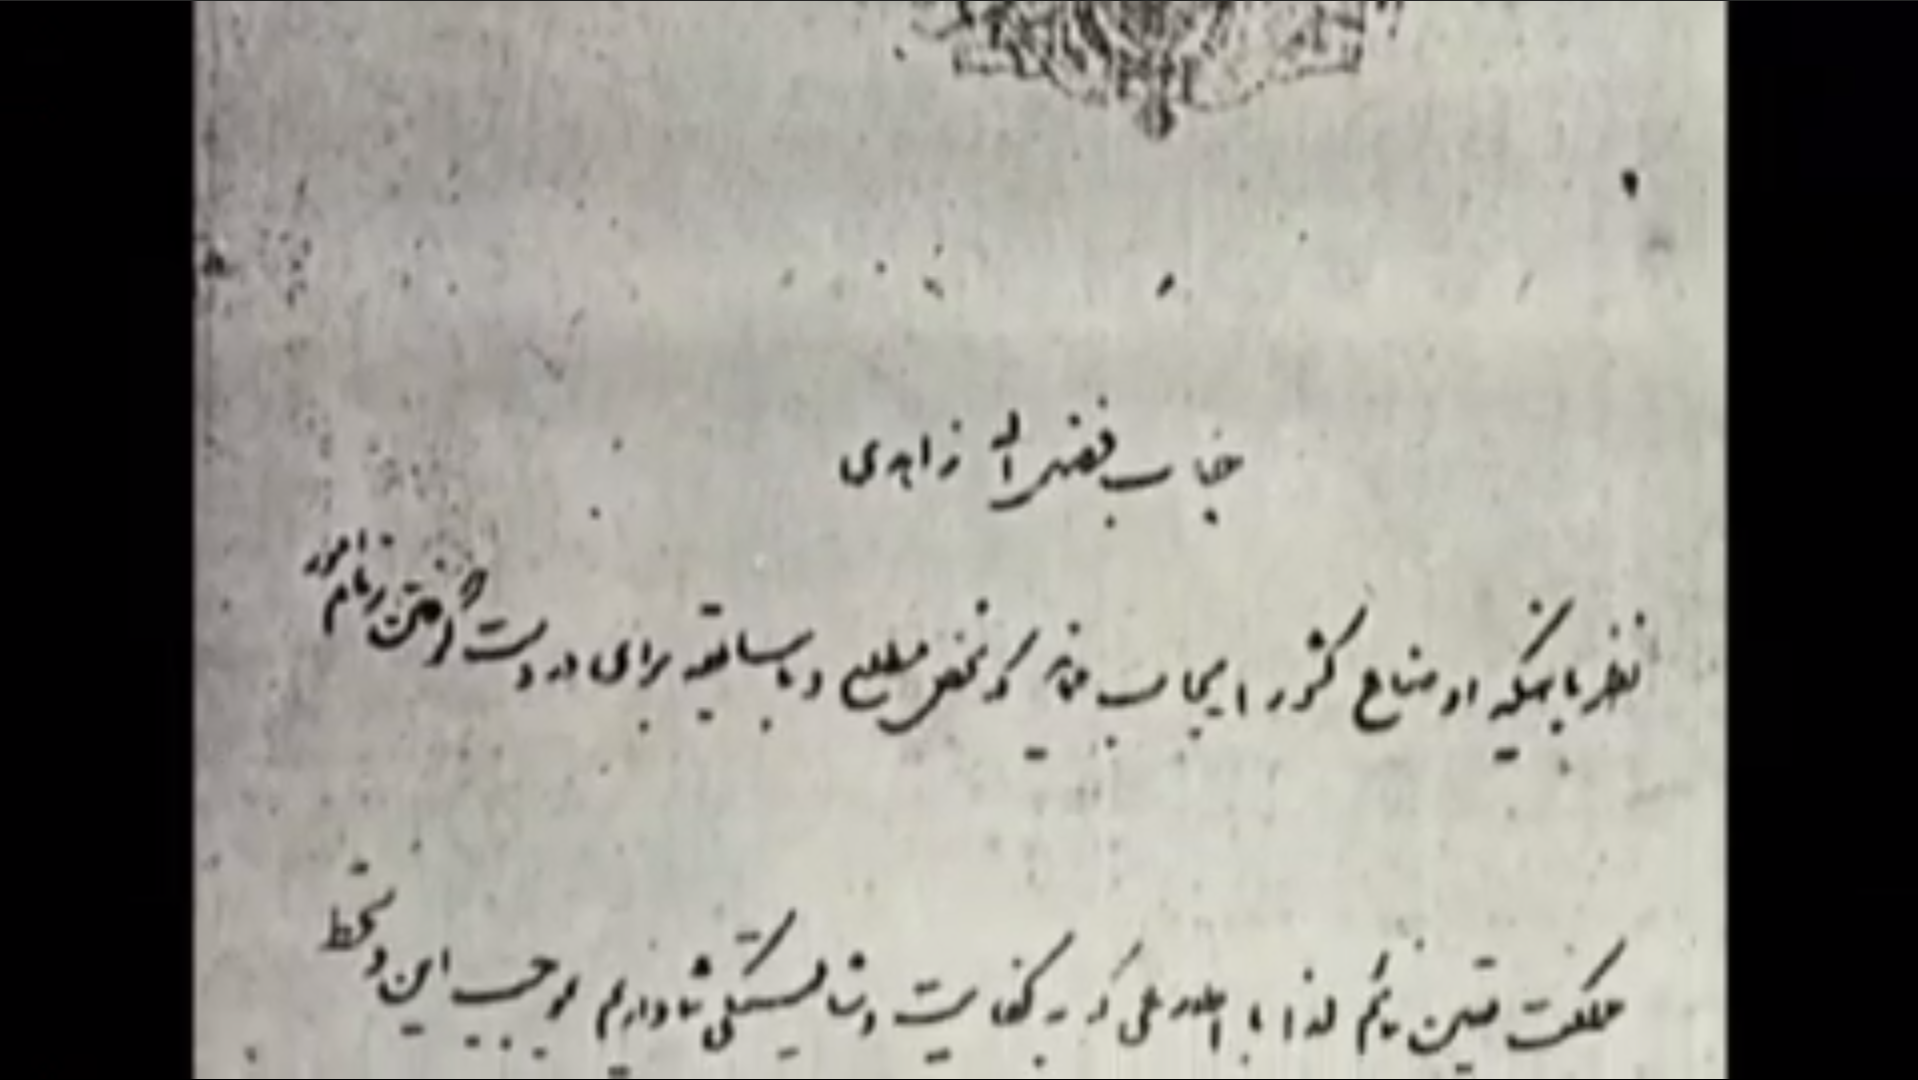 جناب فضل اله زاهدی
نظر باینکه اوضاع کشور ایجاب مینماید که شخص مطلع و با سابقه برای در دست گرفتن زمام امور
مملکت تعیین نمائیم لذا با اطلاعی که به کفایت و شایستگی شما داریم بموجب این دستخط